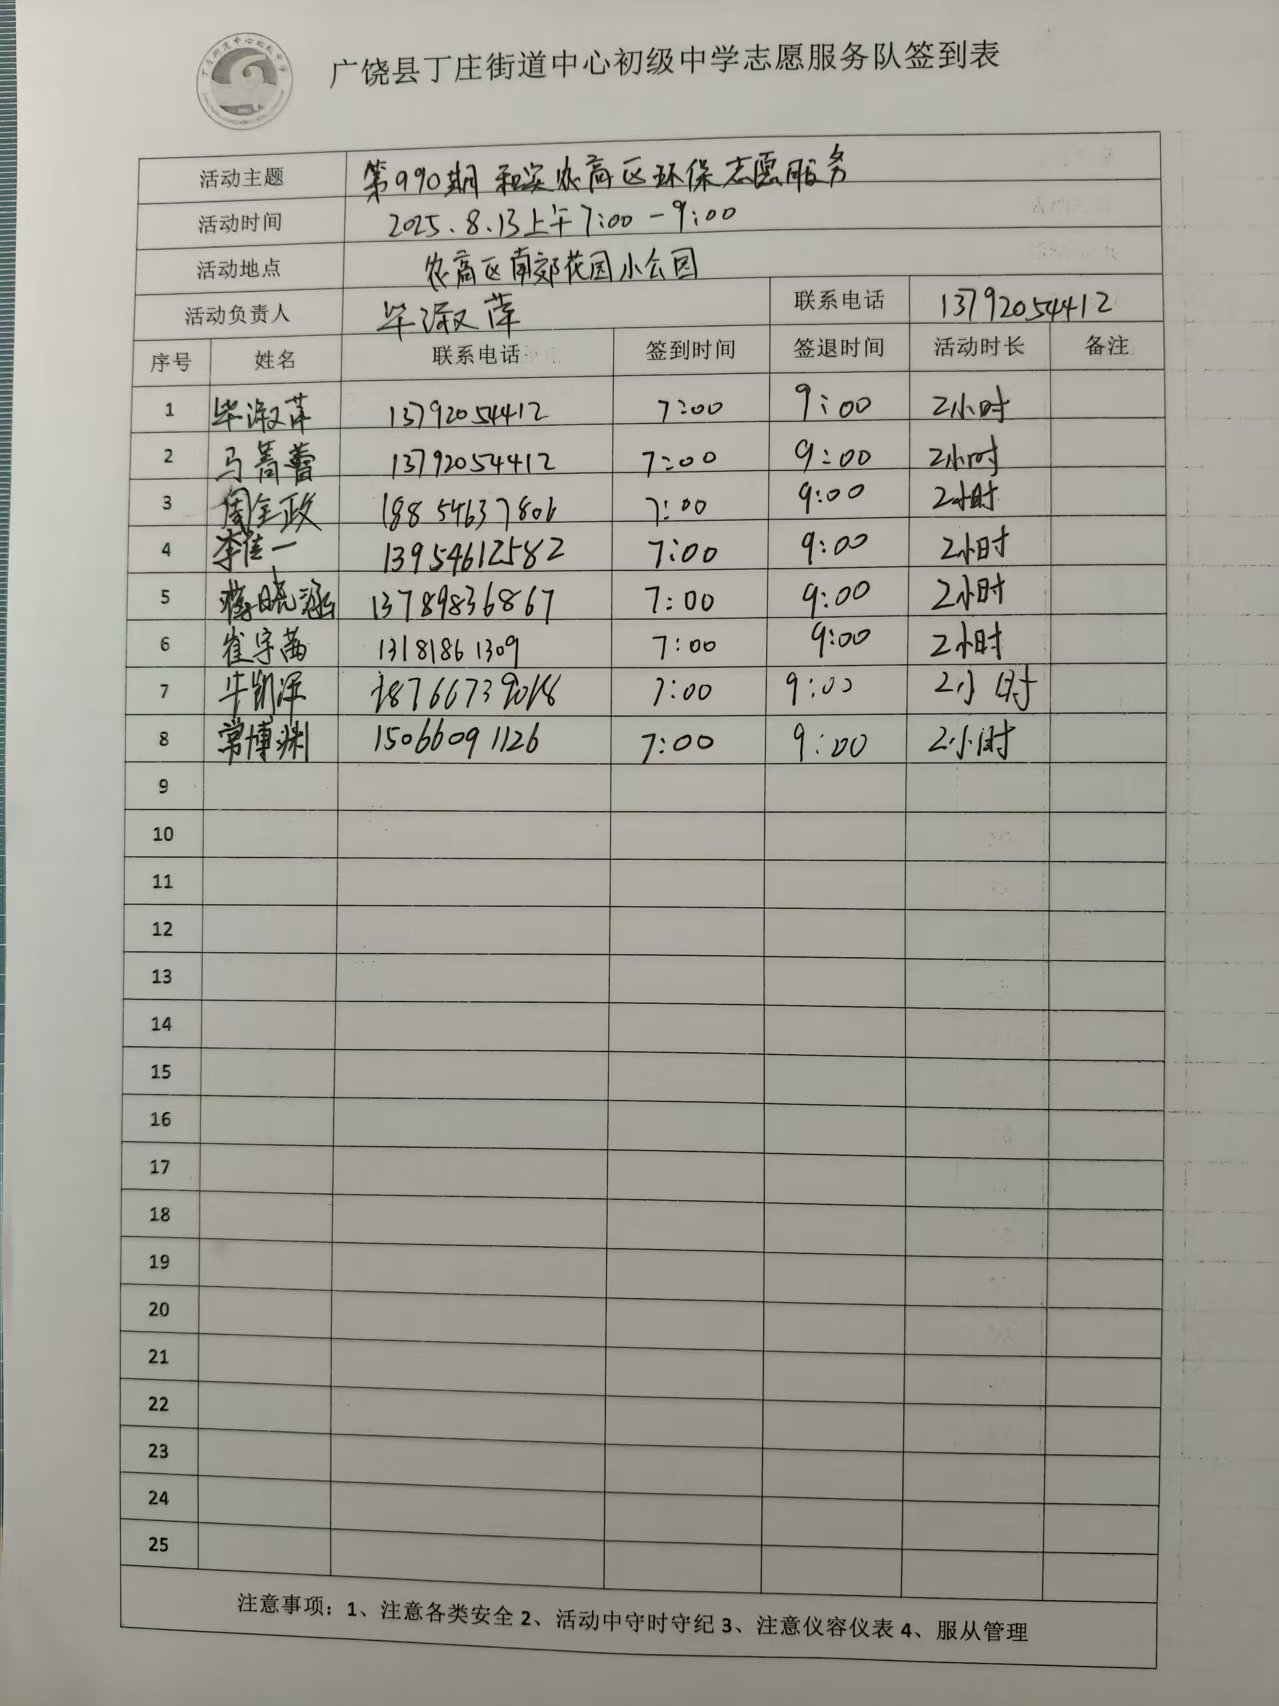 广饶县丁庄街道中心初级中学志愿服务队签到表
活动主题 第990期 和安农高区环保志愿服务
活动时间 2025.8.13上午7:00-9:00
活动地点 农高区南郊花园小公园
活动负责人 毕淑萍 联系电话 13792054412
序号 姓名 联系电话 签到时间 签退时间 活动时长 备注
1 毕淑萍 13792054412 7:00 9:00 2小时
2 马菁蕾 13792054412 7:00 9:00 2小时
3 周全政 18854637806 7:00 9:00 2小时
4 李佳一 13954612582 7:00 9:00 2小时
5 晓涵 13789836867 7:00 9:00 2小时
6 崔宇茜 13181861309 7:00 9:00 2小时
7 牛凯泽 7:00 9:00 2小时
8 常博渊 15066091126 7:00 9:00 2小时
9
10
11
12
13
14
15
16
17
18
19
20
21
22
23
24
25
注意事项：1、注意各类安全 2、活动中守时守纪 3、注意仪容仪表 4、服从管理